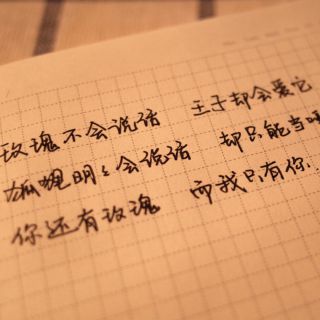 玫瑰不会说话 王子却会爱它
狐狸明明会说话 却只能当
你还有玫瑰 而我只有你